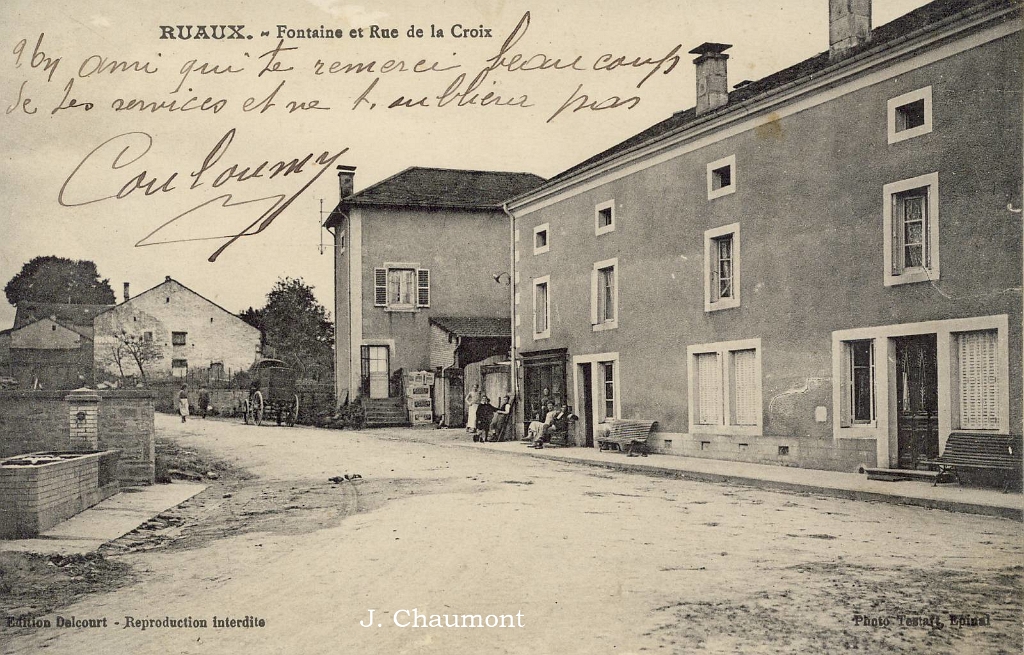 RUAUX. - Fontaine et Rue de la Croix
ami qui te remerci beaucoup
de tes services et ne t. oubliera pas
Couloumy
Edition Delcourt - Reproduction interdite
J. Chaumont
Photo Testart, Epinal